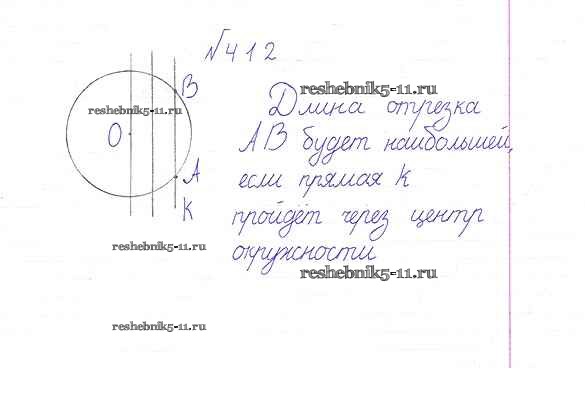 №412
reshebnik5-11.ru
Длина отрезка
reshebnik5-11.ru
В
АВ будет наибольшей,
О
если прямая к
А
К
пройдёт через центр
окружности
reshebnik5-11.ru
reshebnik5-11.ru
reshebnik5-11.ru